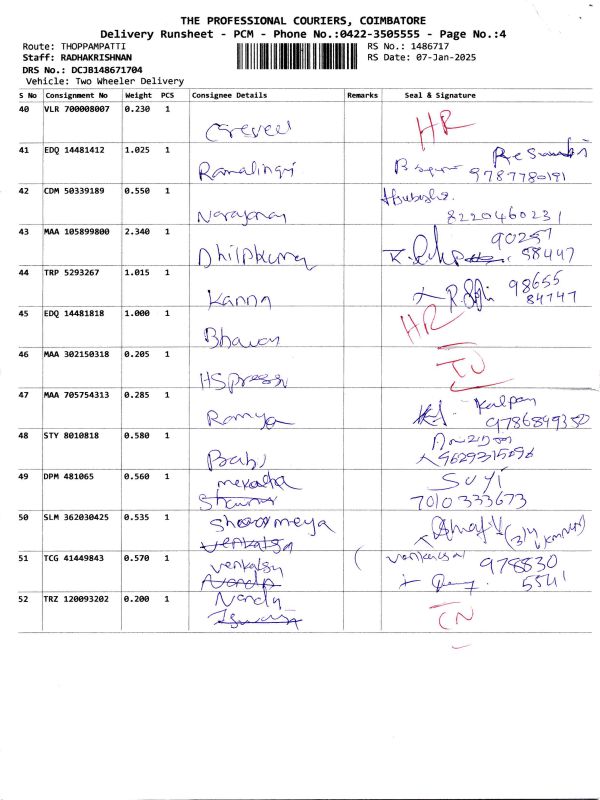 THE PROFESSIONAL COURIERS, COIMBATORE
Delivery Runsheet - PCM - Phone No.:0422-3505555 - Page No.:4
Route: THOPPAMPATTI
RS No.: 1486717
Staff: RADHAKRISHNAN
RS Date: 07-Jan-2025
DRS No.: DCJB148671704
Vehicle: Two Wheeler Delivery
S No Consignment No Weight PCS Consignee Details Remarks Seal & Signature
40 VLR 700008007 0.230 1
HR
41 EDQ 14481412 1.025 1
Ramalingi
9787780191
42 CDM 50339189 0.550 1
Narayanan
8220460231
43 MAA 105899800 2.340 1
90257
Dhilpkumar 58447
44 TRP 5293267 1.015 1
98655
Kanna 84747
45 EDQ 14481818 1.000 1
HR
Bhavan
46 MAA 302150318 0.205 1
HSpress
47 MAA 705754313 0.285 1
Kalpan
Ramya 9786899350
48 STY 8010818 0.580 1
Babi 9629315696
49 DPM 481065 0.560 1
mekala Suji
7010333673
50 SLM 362030425 0.535 1
venkatsa
51 TCG 41449843 0.570 1
venkatsa 978830
Nandu 5541
52 TRZ 120093202 0.200 1
Nandu